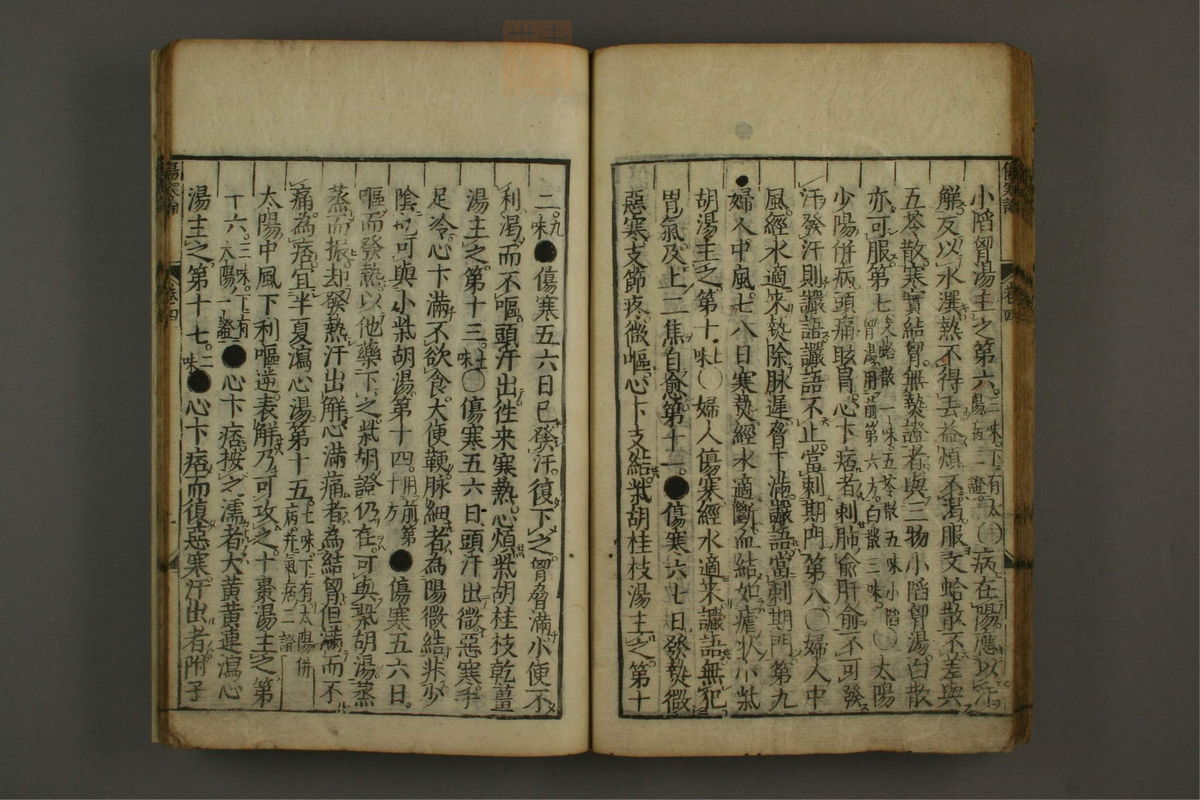 小䧟胷湯主之第六三味下有太陽病一證〇病在陽應以汗
解反以水潠熱不得去益煩不渇服文蛤散不差與
五苓散寒實結胷無熱證者與三物小䧟胷湯白散
亦可服第七文蛤散一味五苓散五味小䧟胷湯用前第六方白散三味〇太陽
少陽併病頭痛眩冒心下痞者刺肺俞肝俞不可發
汗發汗則讝語讝語不止當刺期門第八〇婦人中
風經水適來熱除脉遲脅下滿讝語當刺期門第九
●婦人中風七八日寒熱經水適斷血結如瘧狀小柴
胡湯主之第十七味〇婦人傷寒經水適來讝語無犯
胃氣及上二焦自愈第十一●傷寒六七日發熱微
惡寒支節疼微嘔心下支結柴胡桂枝湯主之第十
傷寒論 卷四
二九味●傷寒五六日已發汗復下之胷脅滿小便不
利渇而不嘔頭汗出往來寒熱心煩柴胡桂枝乾薑
湯主之第十三七味〇傷寒五六日頭汗出微惡寒手
足冷心下滿不欲食大便鞕脉細者為陽微結非少
陰也可與小柴胡湯第十四用前第十方●傷寒五六日
嘔而發熱以他藥下之柴胡證仍在可與柴胡湯蒸
蒸而振却發熱汗出解心滿痛者為結胷但滿而不
痛為痞宜半夏瀉心湯第十五七味下有太陽併病并氣痞二證
太陽中風下利嘔逆表解乃可攻之十棗湯主之第
十六三味下有太陽一證●心下痞按之濡者大黃黃連瀉心
湯主之第十七二味●心下痞而復惡寒汗出者附子
傷寒論 卷四